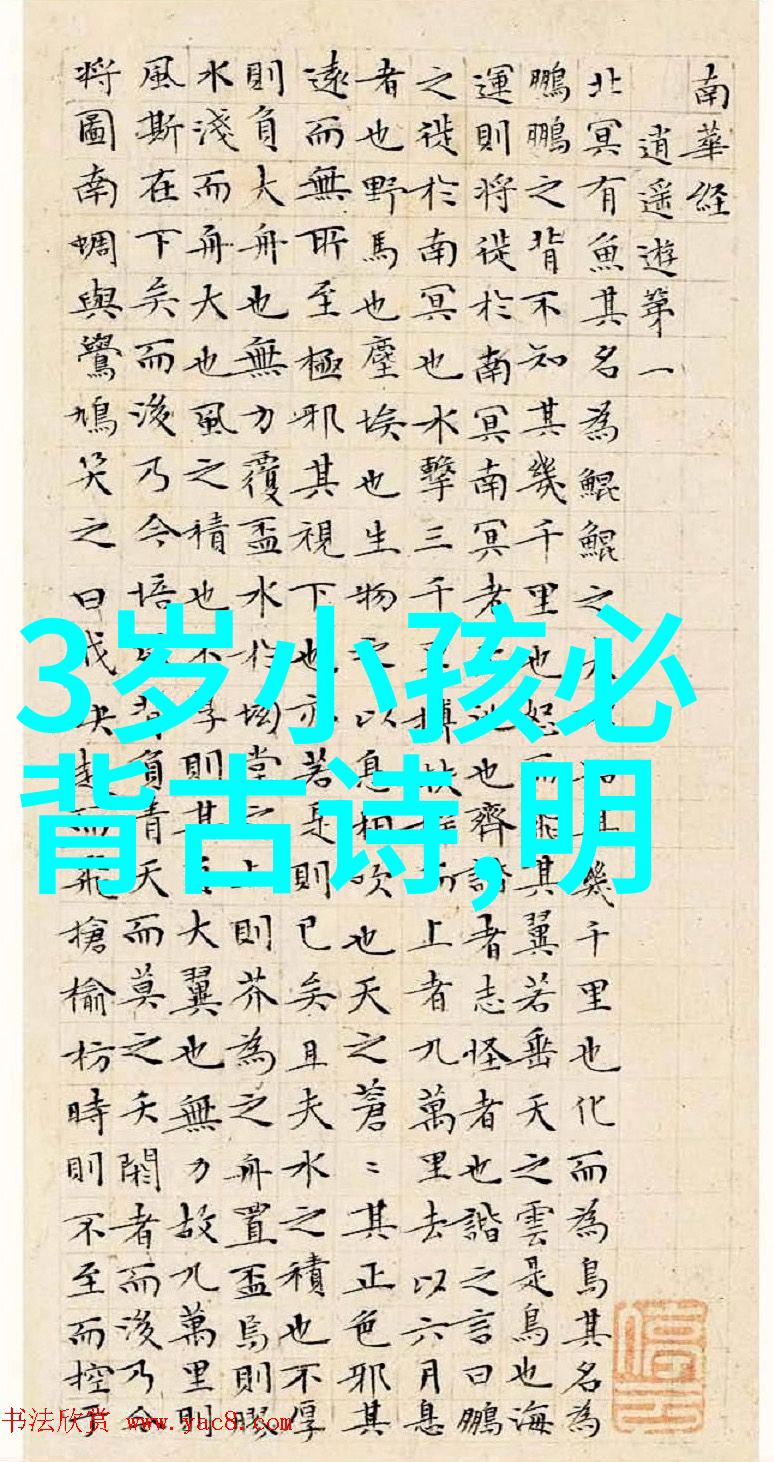 南華經
逍遥遊第一
北冥有魚其名為鯤鯤之大知其幾千里也化而為鳥其名為
鵬鵬之背不知其幾千里也怒而飛其翼若垂天之雲是鳥也海
運則将徙於南冥南冥者池也齊諧者志怪者也諧之言曰鵬
之徙於南冥也水擊三千里摶扶而上者九萬里去以六月息
者也野馬也塵埃也生物之以息相吹也天之蒼〻其正色邪其
遠而無所至極邪其視下也亦若是則已矣且夫水之積也不厚
則負大舟也無力覆盃水於坳堂之上則芥為之舟置盃焉則膠
水淺而舟大也風之積也不厚則其大翼也無力故九萬里則
風斯在下矣而後乃今培風背負青天而莫之夭閼者而後乃今
将圖南蜩與鷽鳩笑之曰我决起而飛搶榆枋時則不至而控於
3岁小孩必
背古诗,明
书法欣赏 www.yac8.com